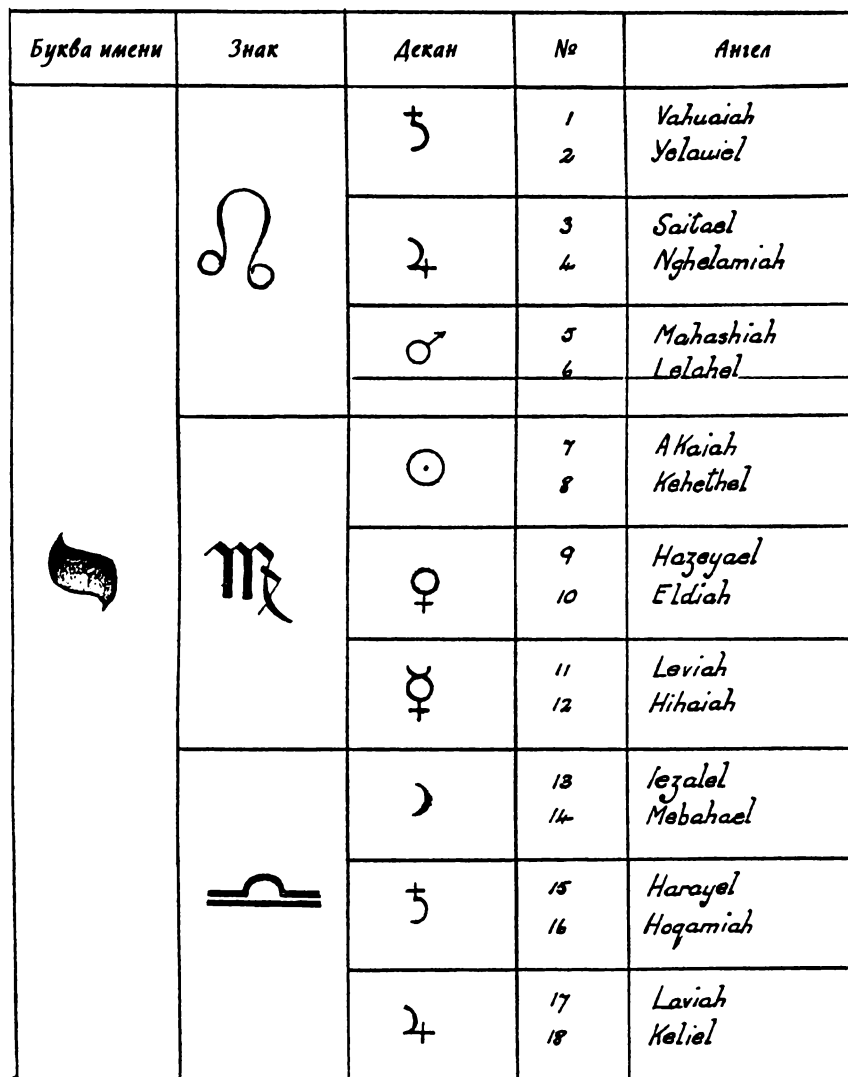 Буква имени Знак Декан № Ангел
♄ 1 Vahuaiah
2 Yelauiel
♌ ♃ 3 Saitael
4 Nghelamiah
♂ 5 Mahashiah
6 Lelahel
☉ 7 AKaiah
8 Kehethel
י ♍ ♀ 9 Hazeyael
10 Eldiah
☿ 11 Leviah
12 Hihaiah
☽ 13 Iezalel
14 Mebahael
♎ ♄ 15 Harayel
16 Hoqamiah
♃ 17 Laviah
18 Keliel